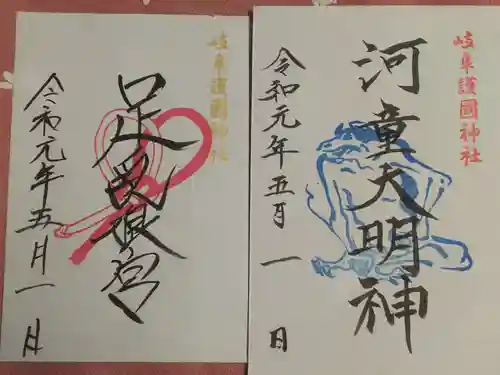 岐阜護國神社
河童大明神
令和元年五月一日
岐阜護國神社
足
宮
令和元年五月一日